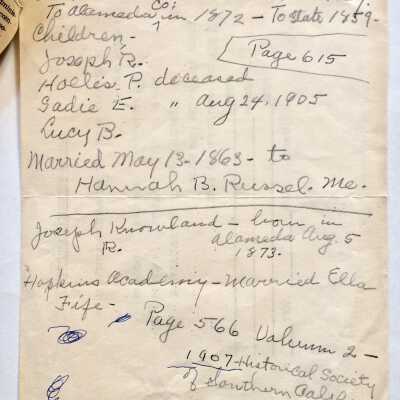 Co:
To Alameda in 1872 - To State 1859.
Children -
Page 615
Joseph R.
Hollis P. deceased
Sadie E. " Aug 24, 1905
Lucy B.
Married May 13 - 1863 - to
Hannah B. Russel. Me.
Joseph Knowland - born in
R. Alameda Aug. 5
1873.
Hopkins Academy - Married Ella
Fife -
Page 566 Valumn 2 -
1907 Historical Society
of Southern